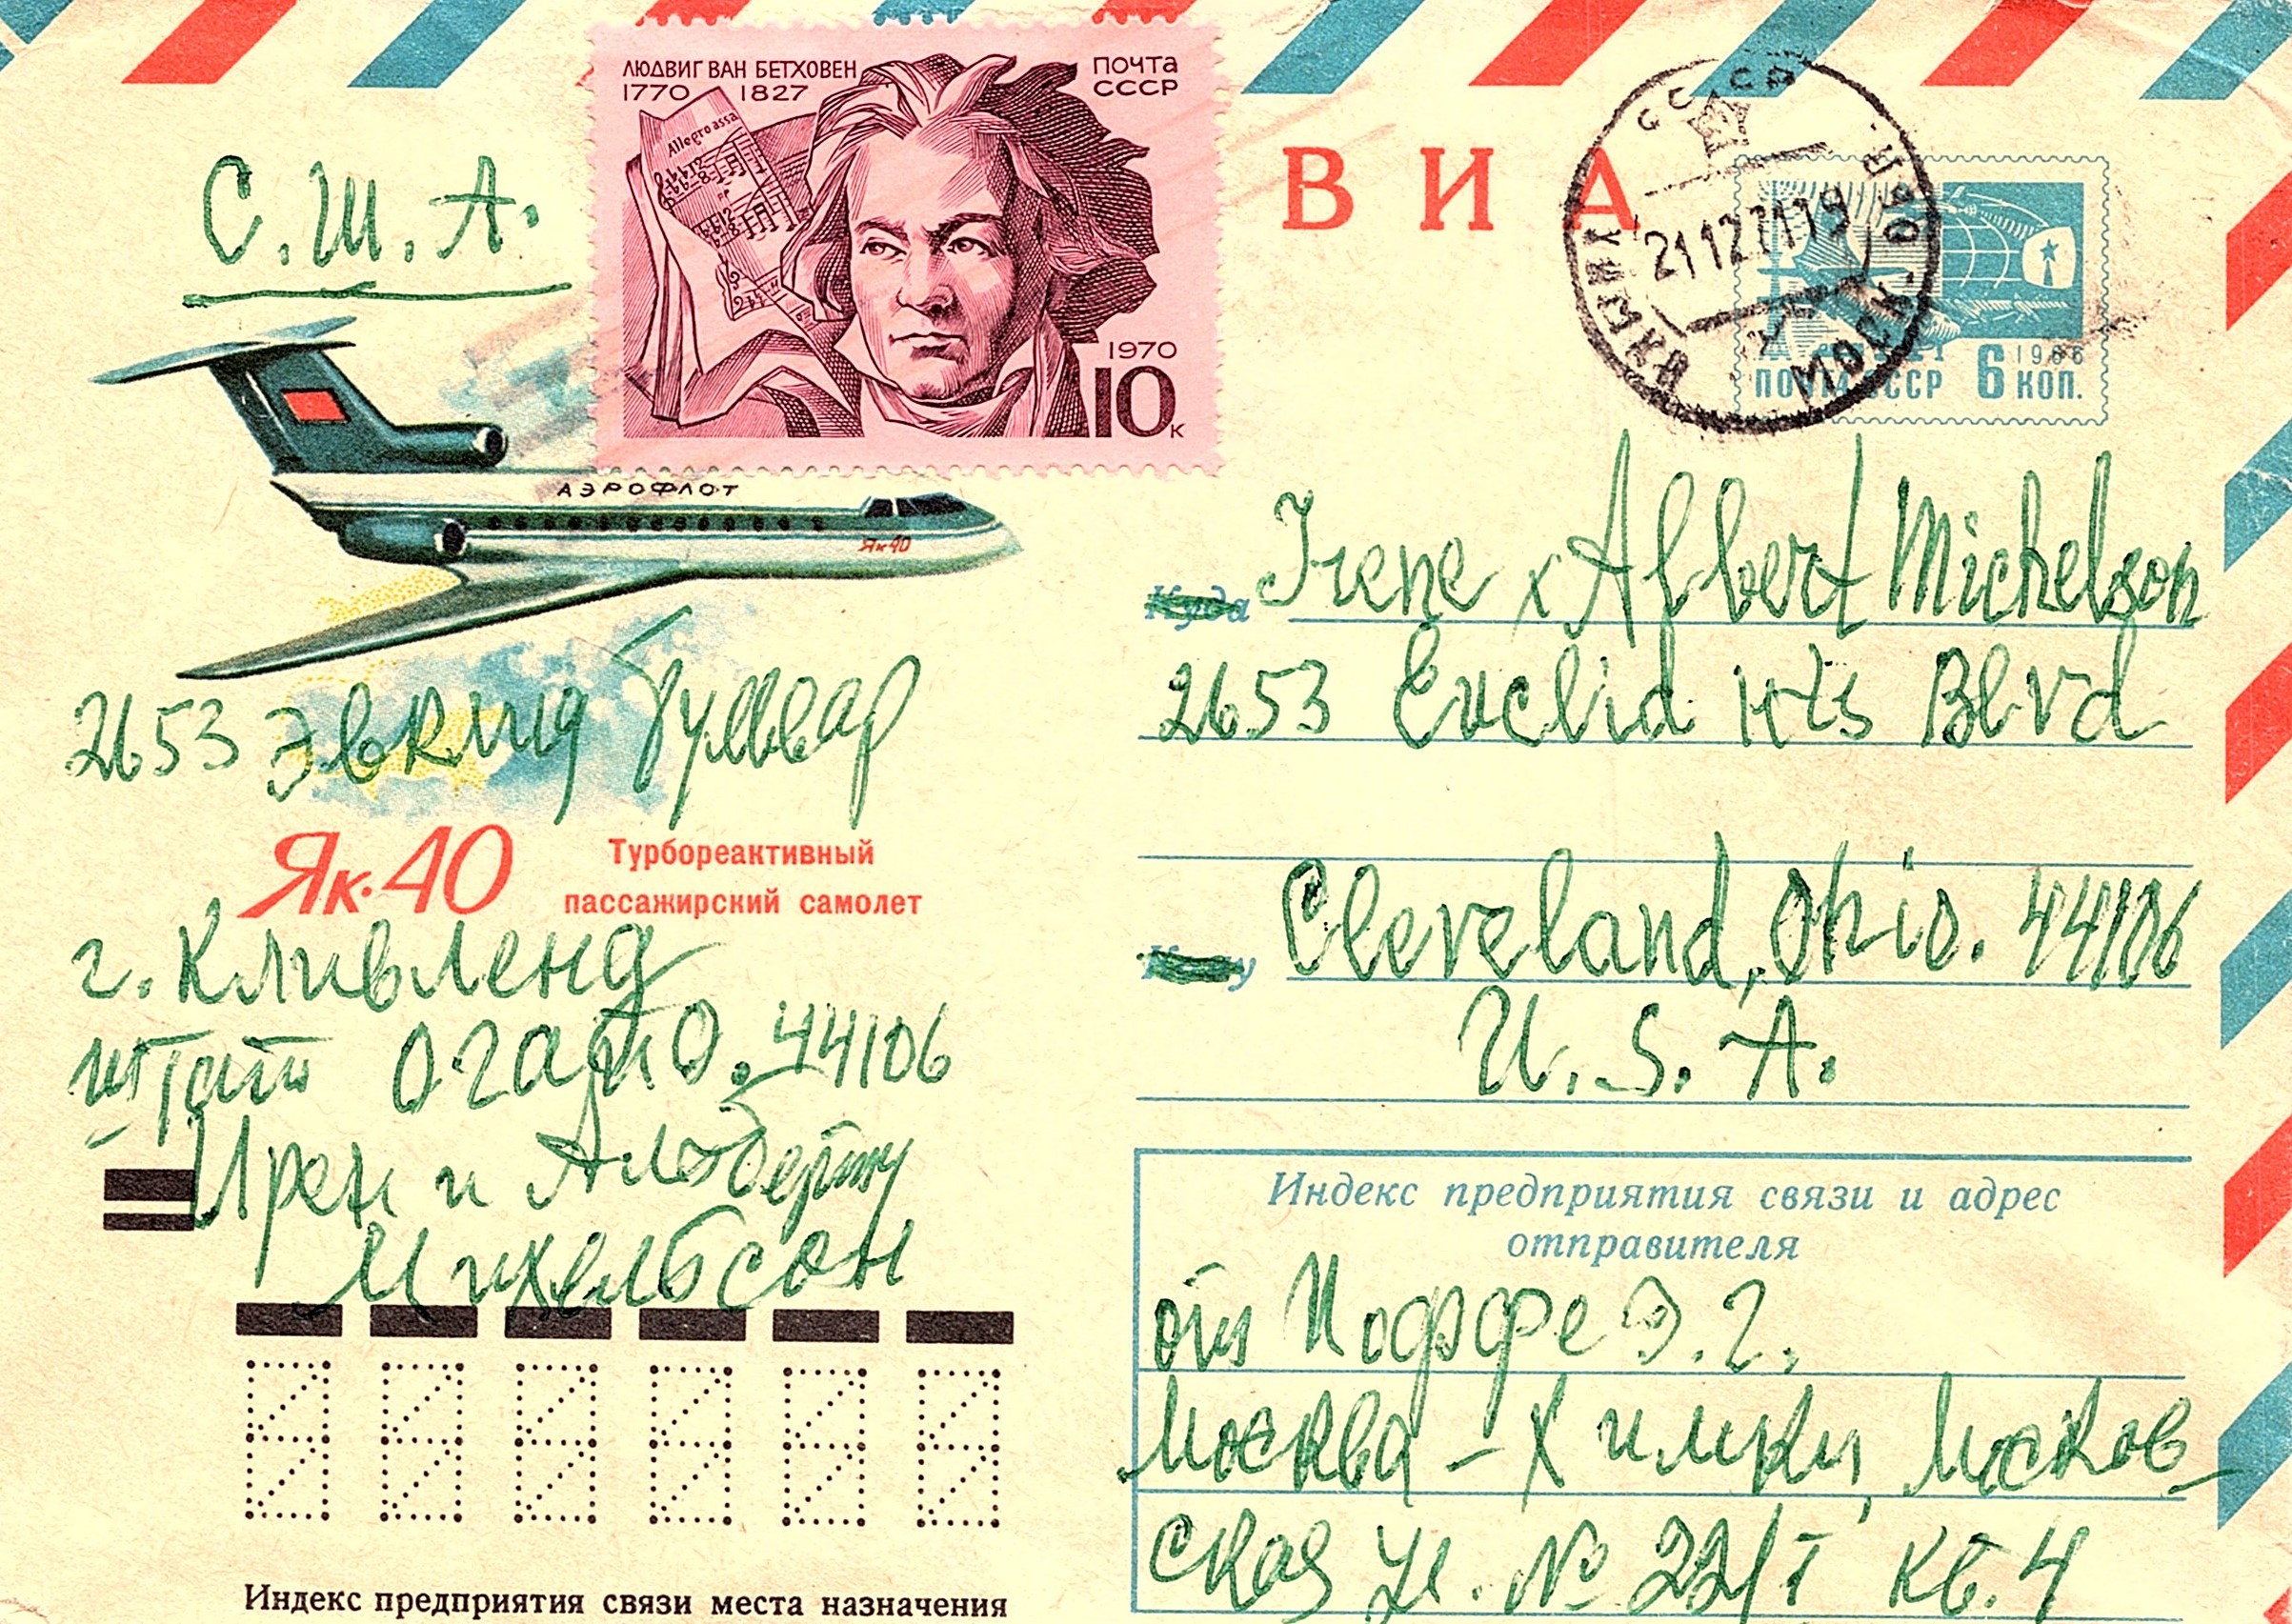 ЛЮДВИГ ВАН БЕТХОВЕН
1770 1827
ПОЧТА
СССР
Allegro assa
1970
10 к
С.Ш.А.
ВИА
СССР
21 12 71 19
ХИМКИ МОСК. ОБЛ.
1966
ПОЧТА СССР 6 КОП.
АЭРОФЛОТ
Як 40
Куда
Irene x Albert Michelson
2653 Euclid Hts Blvd
2653 Эвклид Бульвар
Як-40
Турбореактивный
пассажирский самолет
Cleveland, Ohio. 44106
U. S. A.
г. Кливленд
штат Огайо. 44106
Ирен и Альберту
Михельсон
Индекс предприятия связи и адрес
отправителя
от Иоффе Э. Г.
Москва - Химки, Москов-
ская ул. № 22/1 кв. 4
Индекс предприятия связи места назначения